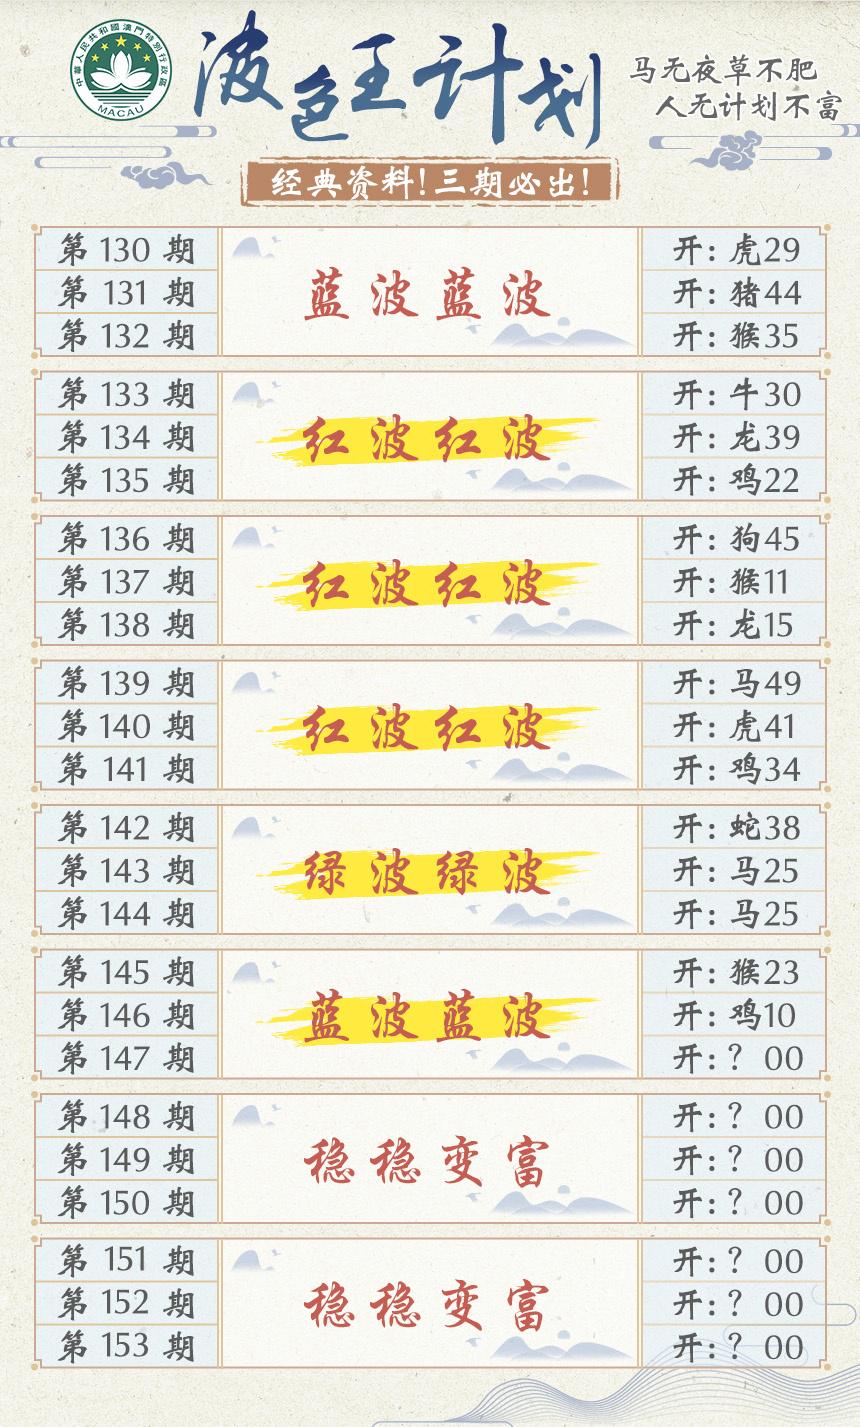 中華人民共和國澳門特別行政區
MACAU
波色王计划
马无夜草不肥
人无计划不富
经典资料!三期必出!
第 130 期 开: 虎29
第 131 期 蓝波蓝波 开: 猪44
第 132 期 开: 猴35
第 133 期 开: 牛30
第 134 期 红波红波 开: 龙39
第 135 期 开: 鸡22
第 136 期 开: 狗45
第 137 期 红波红波 开: 猴11
第 138 期 开: 龙15
第 139 期 开: 马49
第 140 期 红波红波 开: 虎41
第 141 期 开: 鸡34
第 142 期 开: 蛇38
第 143 期 绿波绿波 开: 马25
第 144 期 开: 马25
第 145 期 开: 猴23
第 146 期 蓝波蓝波 开: 鸡10
第 147 期 开: ? 00
第 148 期 开: ? 00
第 149 期 稳稳变富 开: ? 00
第 150 期 开: ? 00
第 151 期 开: ? 00
第 152 期 稳稳变富 开: ? 00
第 153 期 开: ? 00